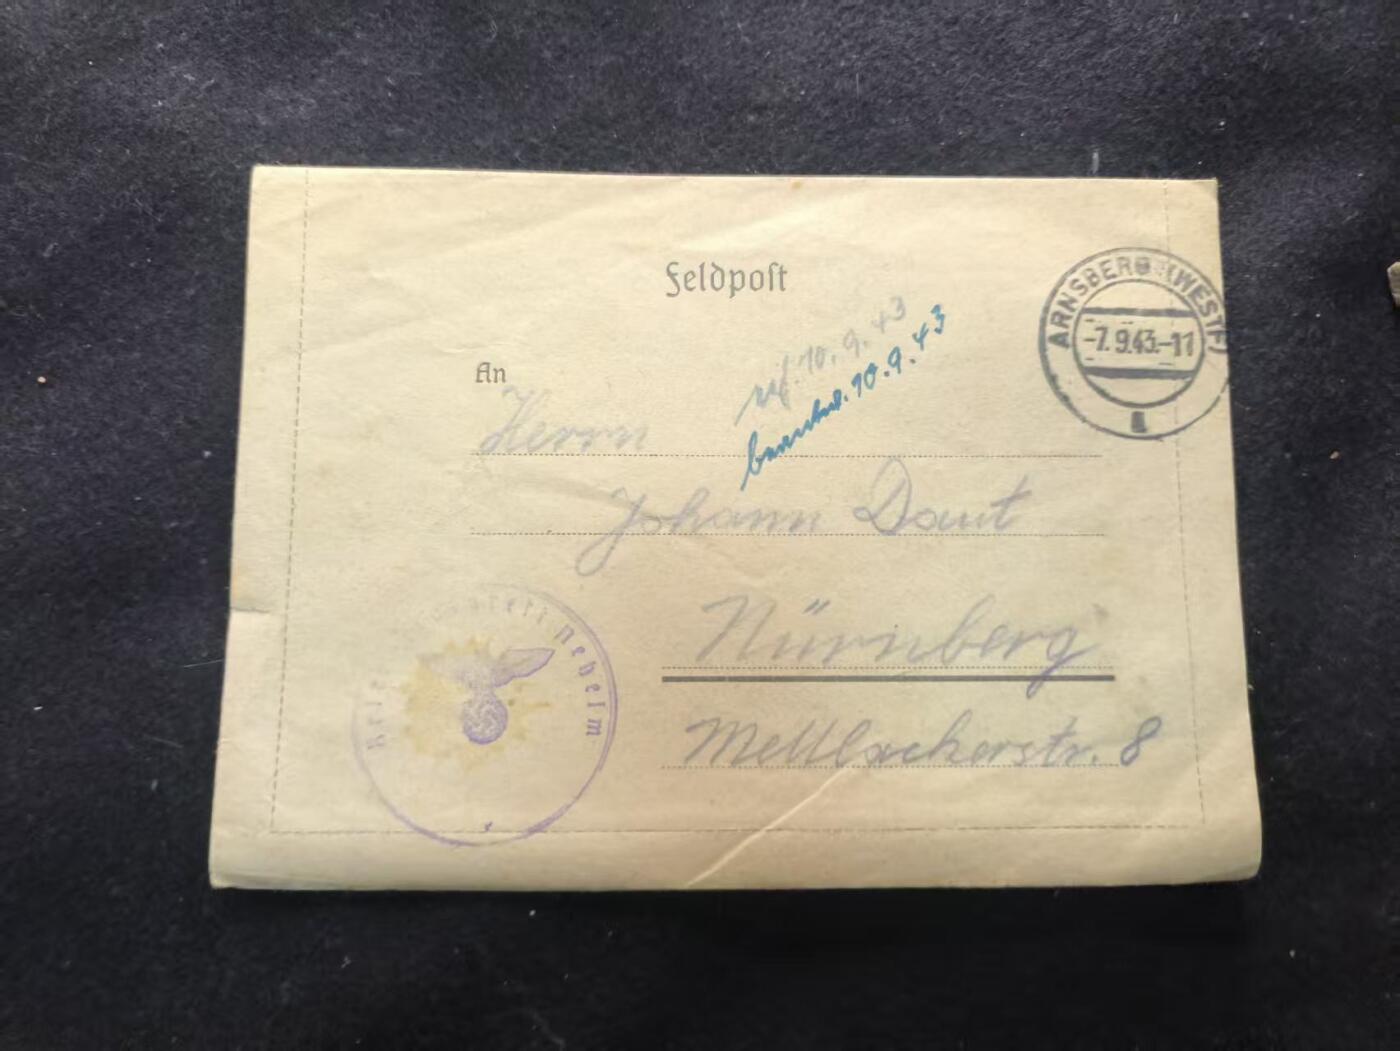 Feldpost
ARNSBERG (WESTF)
-7.9.43.-11
a
An
Herrn
10.9.43
beantw. 10.9.43
Johann Daut
Nürnberg
Mettlacherstr. 8
Neheim